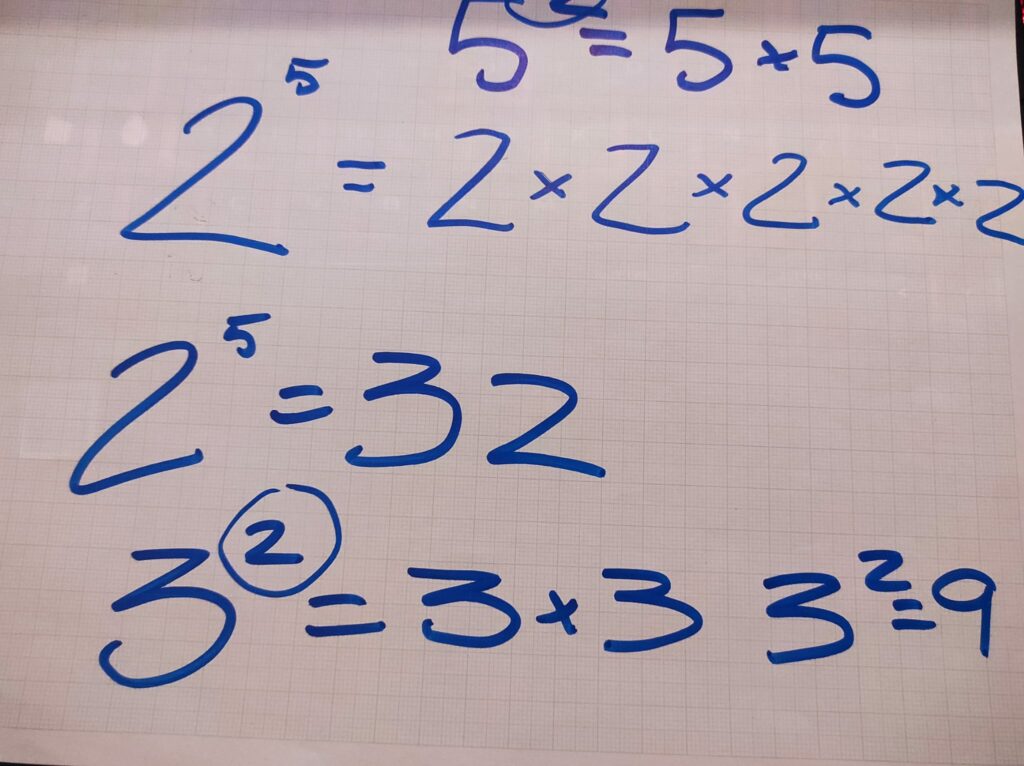 5² = 5 × 5
2⁵ = 2 × 2 × 2 × 2 × 2
2⁵ = 32
3² = 3 × 3 3² = 9